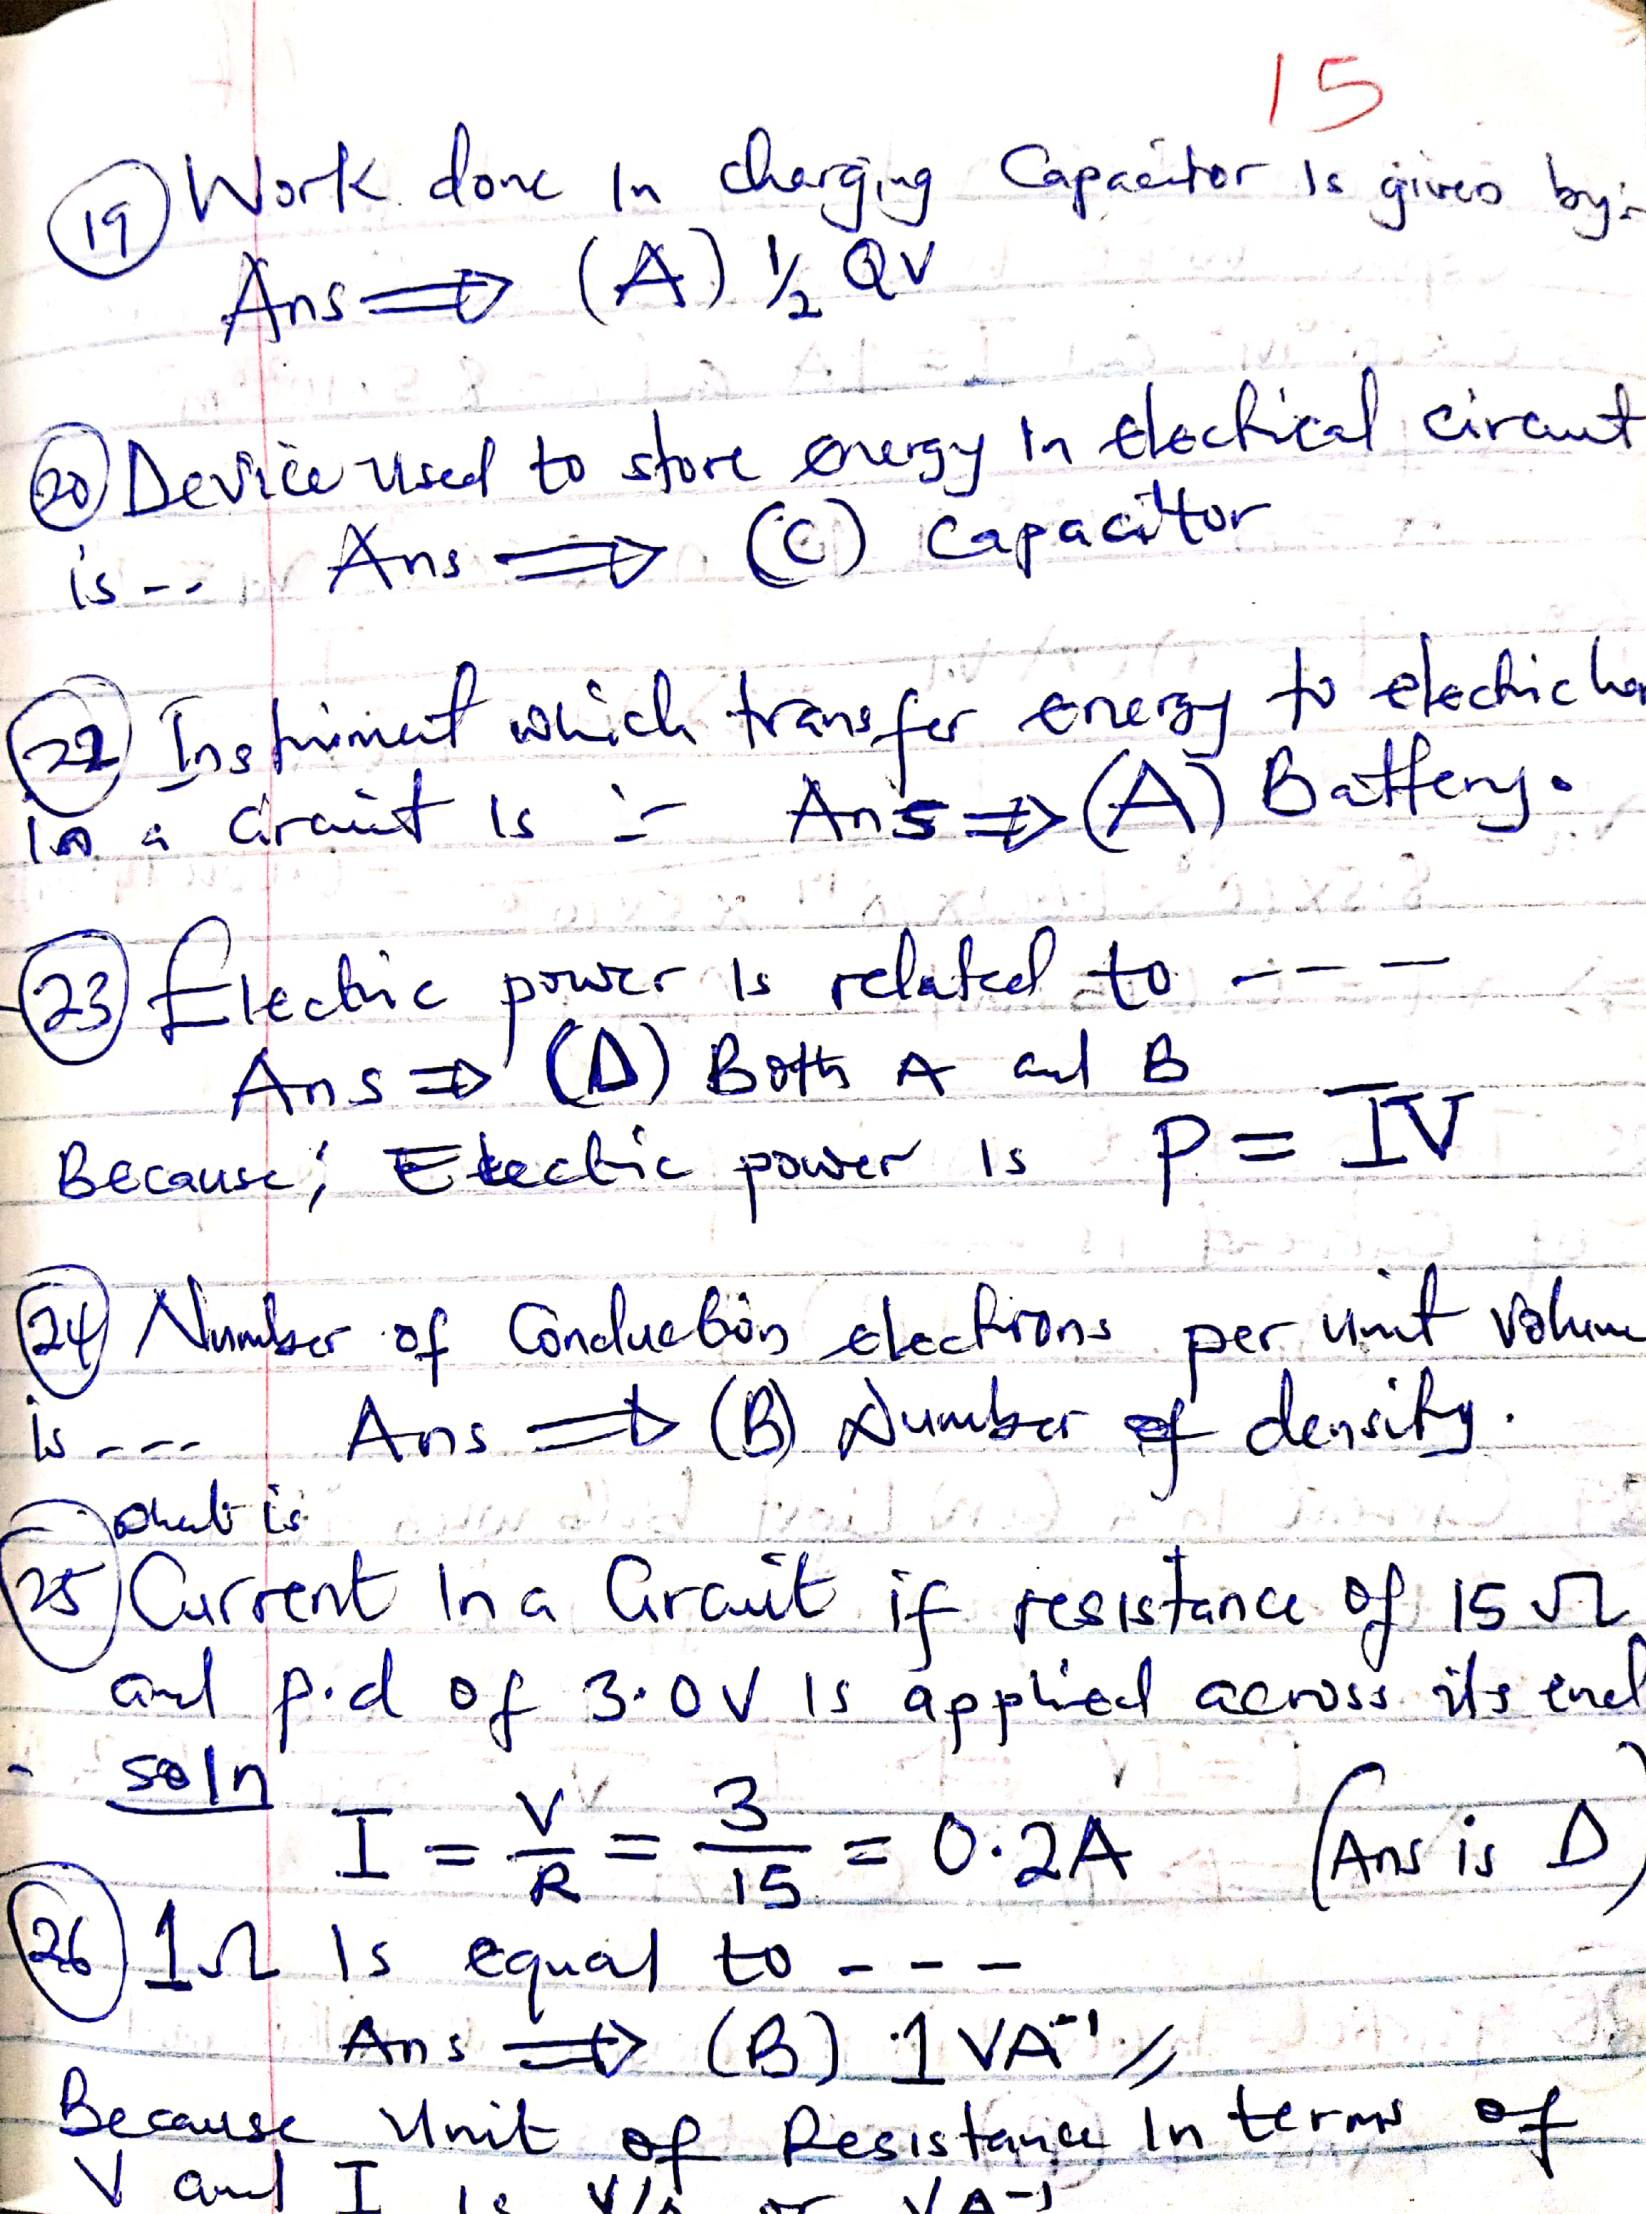 15
19 Work done In charging Capacitor Is given by:-
Ans ⇒ (A) ½ QV
20 Device used to store energy In electrical circuit
is -- Ans ⇒ (C) Capacitor
22 Instrument which transfer energy to electric
In a circuit Is :- Ans ⇒ (A) Battery.
23 Electric power Is related to ---
Ans ⇒ (D) Both A and B
Because; Electric power Is P = IV
24 Number of Conduction electrons per unit volume
is --- Ans ⇒ (B) Number of density.
what is
25 Current In a Circuit if resistance of 15 Ω
and p.d of 3.0V Is applied across its end
soln
I = V/R = 3/15 = 0.2A (Ans is D)
26 1Ω Is equal to ---
Ans ⇒ (B) 1 VA⁻¹ //
Because Unit of Resistance In terms of
V and I Is V/A or VA⁻¹